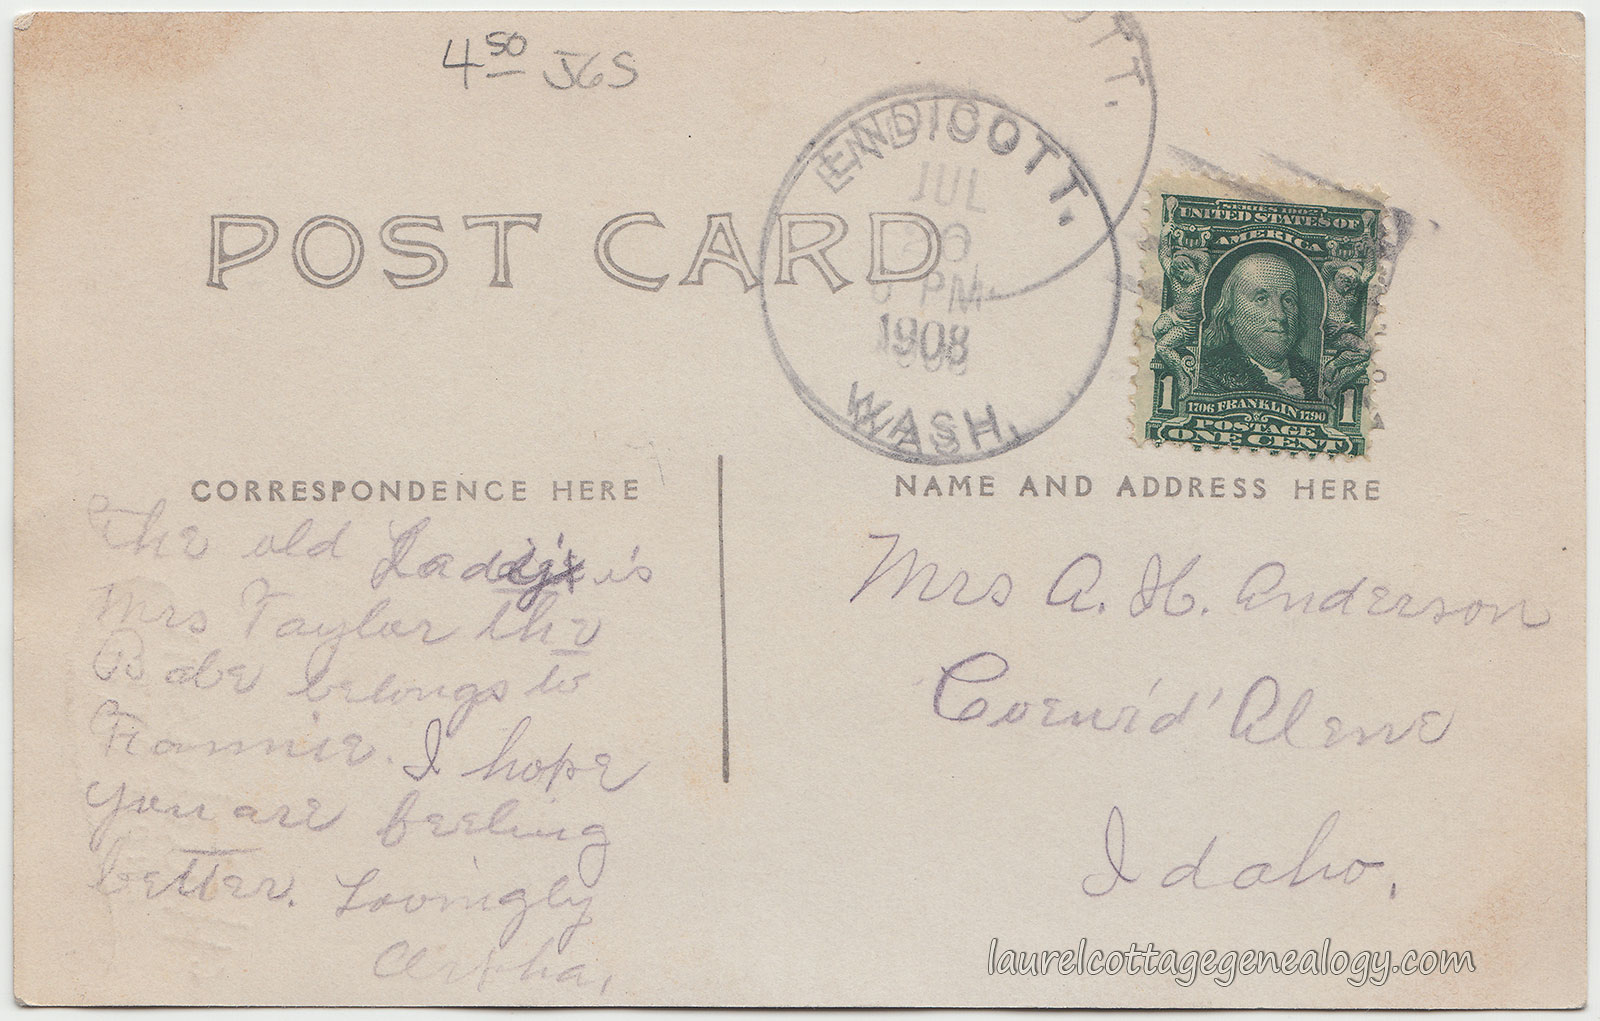 4 50 J6S
ENDICOTT.
JUL
6 PM
1908
WASH.
OTT.
POST CARD
SERIES 1902
UNITED STATES OF
AMERICA
1706 FRANKLIN 1790
1 1
POSTAGE
ONE CENT
CORRESPONDENCE HERE
The old Lady is
Mrs Taylor the
Babe belongs to
Fannie. I hope
you are feeling
better. Lovingly
Orpha.
NAME AND ADDRESS HERE
Mrs A. H. Anderson
Coeur'd'Alene
Idaho.
laurelcottagegenealogy.com